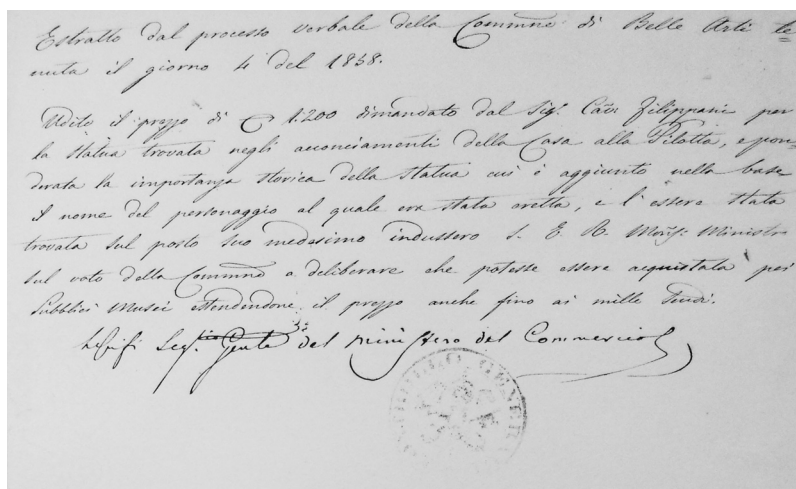 Estratto dal processo verbale della Commne di Belle Arti te=
nuta il giorno 4 del 1858.
Udito il prezzo di 1200 dimandato dal Sig. Cav. Filippani per
la statua trovata negli acconciamenti della Casa alla Pilotta, e pon=
derata la importanza storica della statua cui è aggiunto nella base
il nome del personaggio al quale era stata eretta, e l'essere stata
trovata sul posto suo medesimo indussero S. E. R. Monsr. Ministro
sul voto della Commne a deliberare che potesse essere acquistata pei
pubblici Musei estendendone il prezzo anche fino ai mille scudi.
Seg. Genle del Ministero del Commercio
GENER